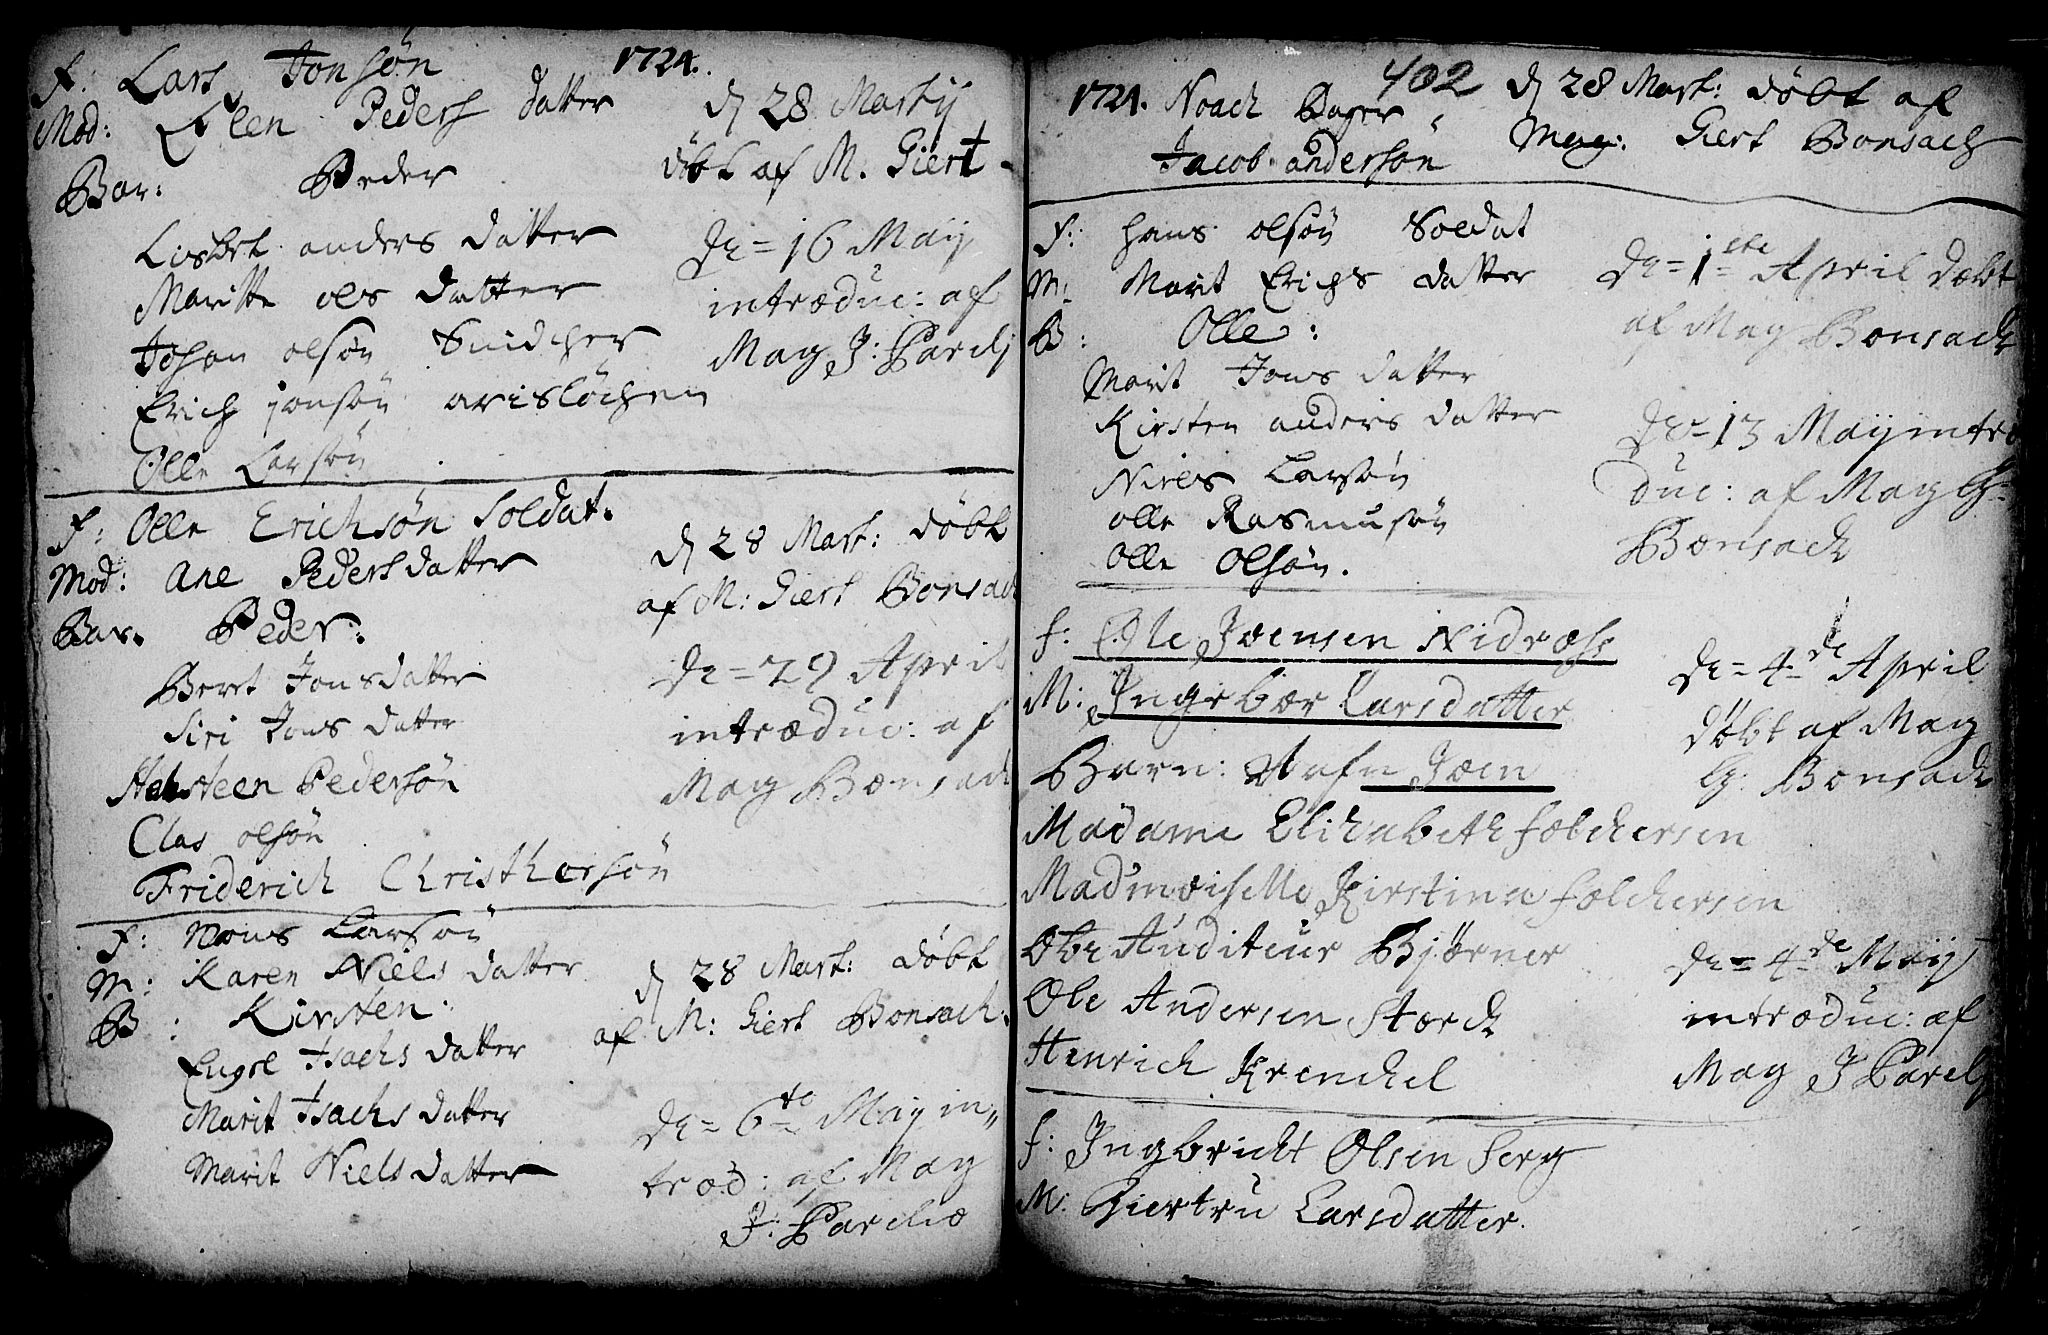 1724.
F: Lars Jonsøn
Mod: Elen Peders datter
Bar: Peder
d 28 Martij
döbt af M. Giert
Lisbet anders datter
Maritte ols datter
Johan olsøn Snidcher
Erich jonsøn
Olle Larsøn
de = 16 Maij
introduc: af
Mag J: Parelj
F: Olle Erichsøn Soldat.
Mod: Ane Pedersdatter
Bar. Peder:
Beret Jonsdatter
Siri Jons datter
Halsteen Pedersøn
Clas olsøn
Friderich Christhersøn
d 28 Mart: döbt
af M: Giert Bonsach
de = 29 April
introduc: af
Mag Bonsach
F: Mons Larsøn
M: Karen Niels datter
B: Kirsten.
Engel Isachs datter
Marit Isachs datter
Marit Niels datter
d 28 Mart: döbt
af M: Giert Bonsach.
de = 6te Maij in„
trod: af Mag
J: Parelio
402
1724. Noach Bager
Jacob andersøn
d 28 Mart: döbt af
Mag: Giert Bonsach
F: hans olsøn Soldat
M: Marit Erichs datter
B: Olle:
Marit Jons datter
Kirsten anders datter
Niels Larsøn
olle Rasmusøn
olle Olsøn.
de = 1ste April döbt
af Mag Bonsach
de = 13 Maij intro
duc: af Mag G:
Bonsach
F: Ole Joensen Nidrosi
M: Ingebor Larsdatter
Barn: Nafn Joen
Madame Elizabeth Folchersen
Mad'moiselle Kirstina Folchersen
Obr Auditeur Bjørner
Ole Andersen Storch
Henrich Krenchel
de = 4de April
döbt af Mag
G: Bonsach
de = 4de Maij
introduc: af
Mag J Parelj
F: Ingbricht Olsen ferg
M: Giertru Larsdatter.